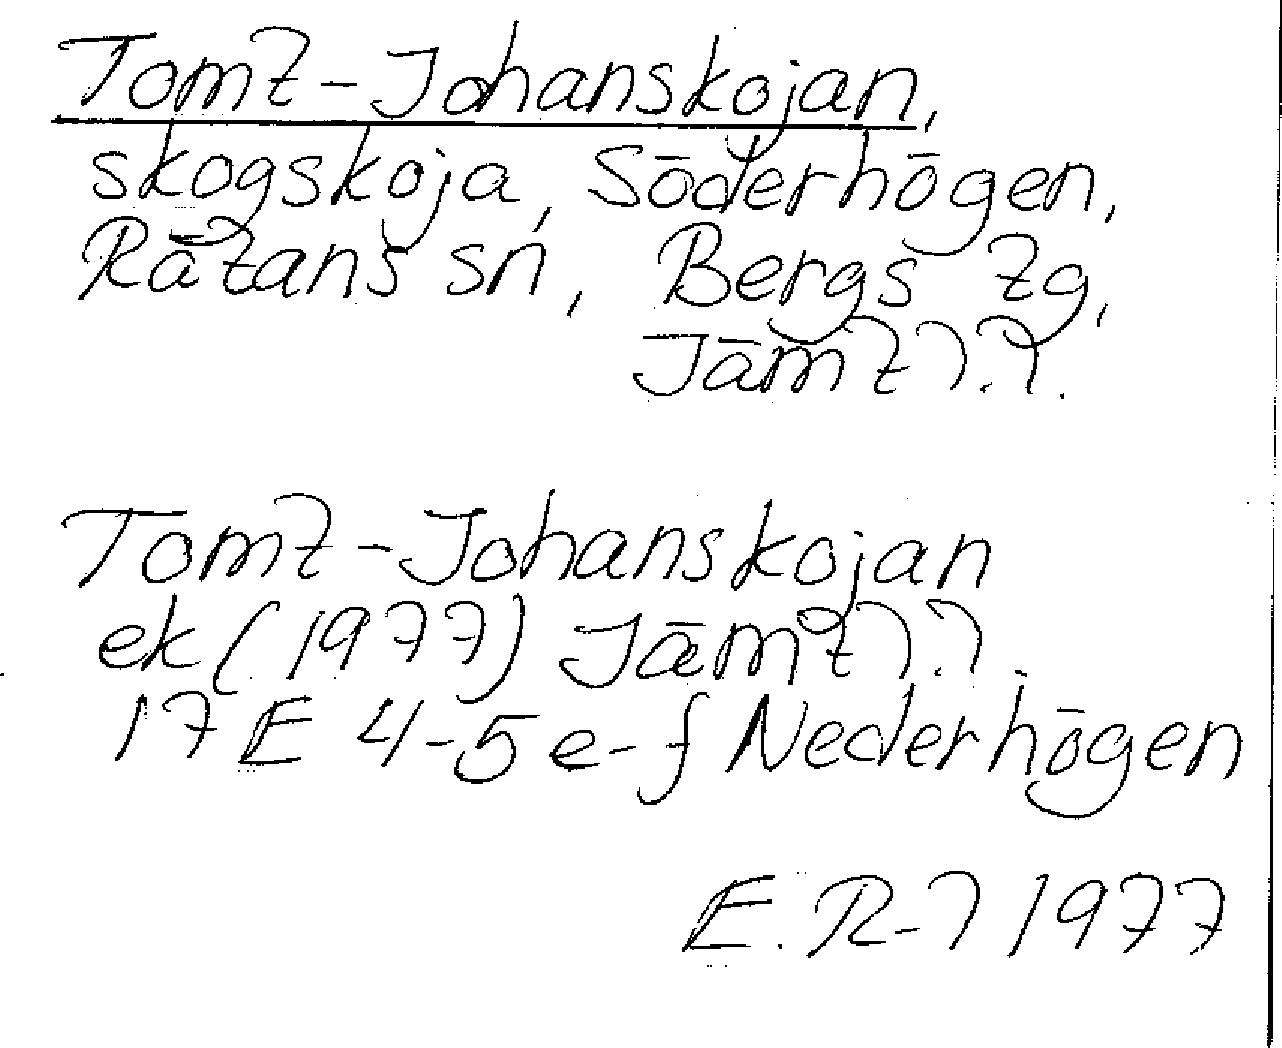 Tomt-Johanskojan,
skogskoja, Söderhögen,
Rätans sn, Bergs tg,
Jämtl.l.
Tomt-Johanskojan
ek (1977) Jämtl.l.
17E 4-5 e-f Nederhögen
E. R-l 1977